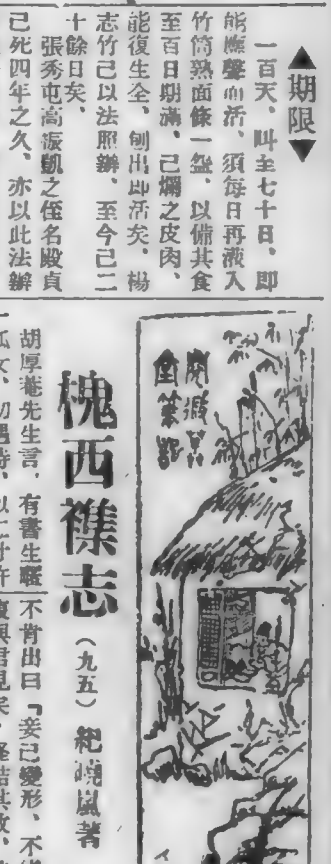 ▲期限▼
一百天、叫至七十日、即
能應聲而活、須每日再液入
竹筒熟面條一盤、以備其食
至百日期滿、已爛之皮肉、
能復生全、刨出即活矣、楊
志竹已以法照辦、至今已二
十餘日矣、
張秀屯高振凱之侄名殿貞
已死四年之久、亦以此法辦
閱微草
堂筆記
槐西襍志
(九五)
紀曉嵐著
胡厚菴先生言、有書生
狐女、初遇時、以二寸許
不肯出曰「妾已變形、不
復與君見矣、怪詰其故、